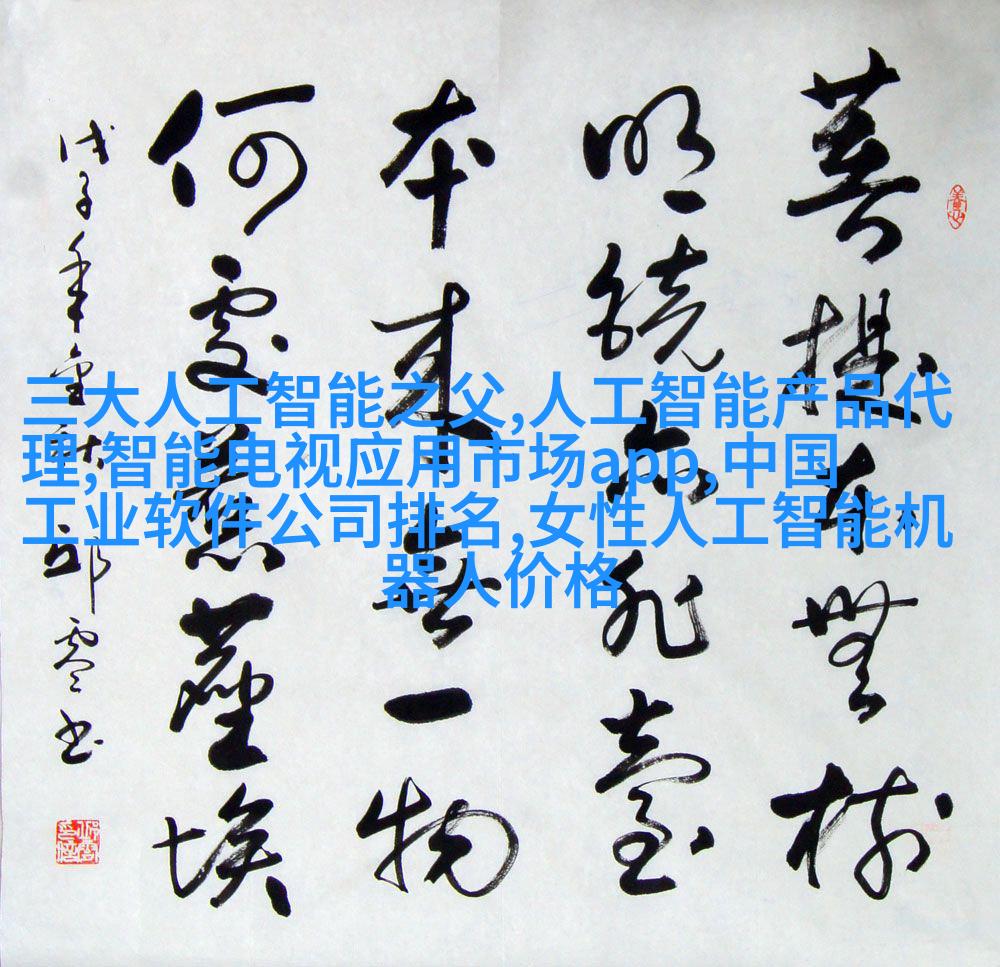 三大人工智能之父,人工智能产品代
理,智能电视应用市场app,中国
工业软件公司排名,女性人工智能机
器人价格
菩提本無树
明鏡亦非臺
本来無一物
何處惹塵埃
戊子年金秋邱零书